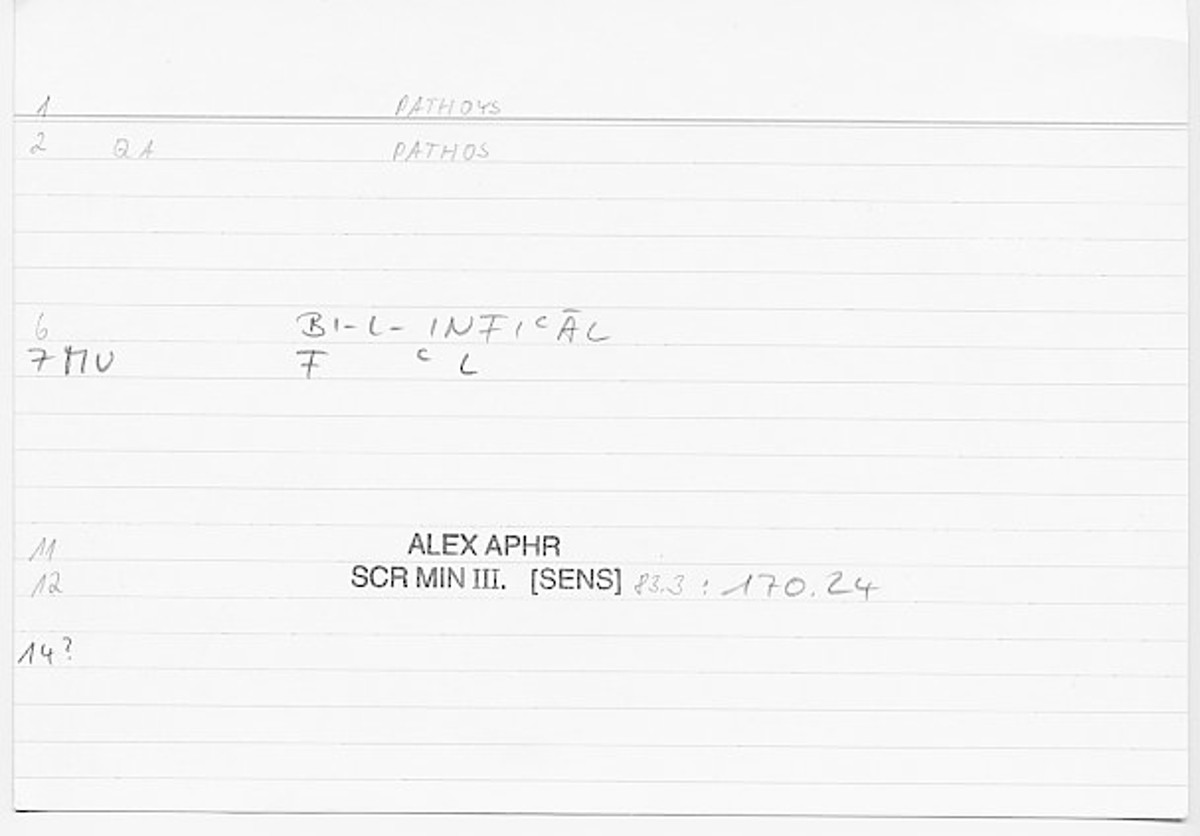 1 PATHOYS
2 QA PATHOS
6 BI-L- INFIᶜĀL
7 MU F ᶜ L
11 ALEX APHR
12 SCR MIN III. [SENS] 83.3 : 170.24
14?